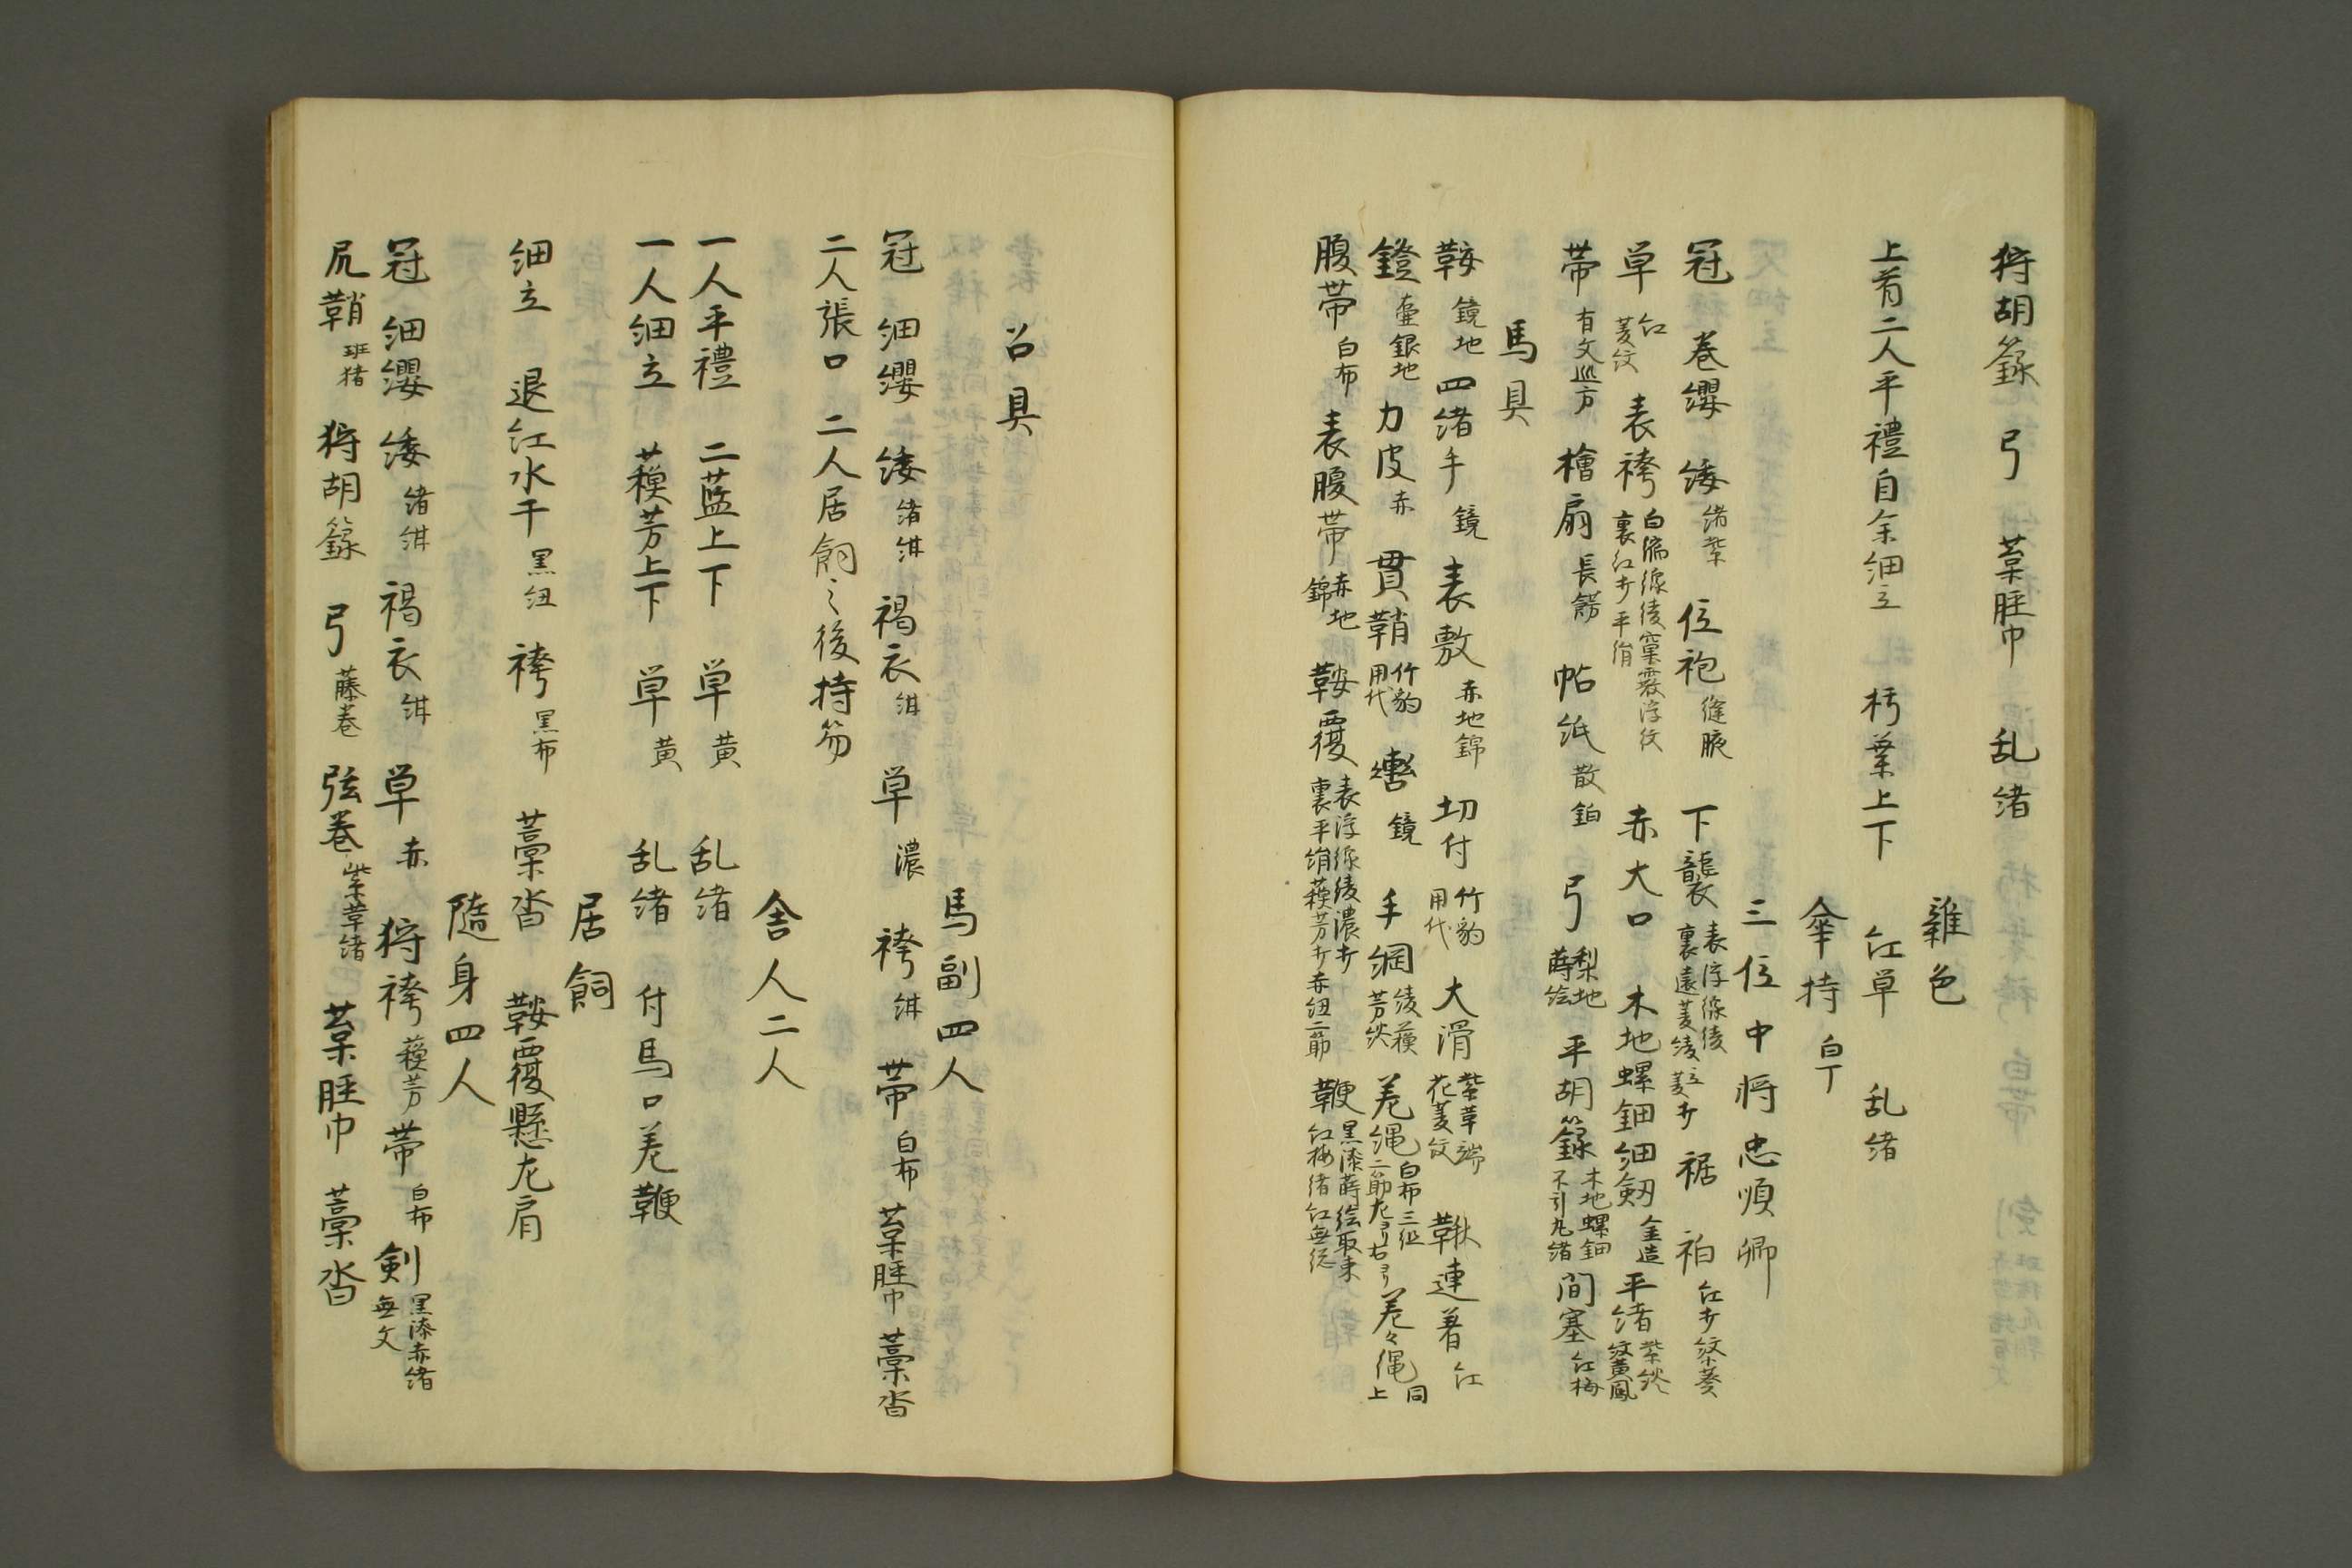 狩胡籙 弓 葉脛巾 乱緒
雜色
上首二人平禮自余細立 朽葉上下 紅単 乱緒
傘持 白丁
三位中将忠順卿
冠 巻纓 緌 緒紫 位袍 縫腋 下襲 表浮線綾 裏遠菱綾 立菱 裾 衵 紅 紋葵
単 紅 菱紋 表袴 白浮線綾窠霰浮紋 裏紅 平絹 赤大口 木地螺鈿細劔 金造 平緒 紫緂 紋黄鳳
帯 有文巡方 檜扇 長餝 帖紙 散鉑 弓 梨地 蒔絵 平胡籙 木地螺鈿 不引丸緒 間塞 紅梅
馬具
鞍 鏡地 四緒手 鏡 表敷 赤地錦 切付 竹豹 用代 大滑 紫草端 花菱紋 鞦 連着 紅
鐙 壷銀地 力皮 赤 貫鞘 竹豹 用代 轡 鏡 手綱 綾蘓芳緂 差縄 白布三位 二筋左 右 差々縄 同上
腹帯 白布 表腹帯 赤地錦 鞍覆 表浮線綾濃 裏平絹蘓芳 赤紐二筋 鞭 黒漆蒔絵取束 紅梅緒紅無総
召具
馬副四人
冠 細纓 緌 緒紺 褐衣 紺 単 濃 袴 紺 帯 白布 葉脛巾 藁沓
二人張口 二人居飼之後持笏
舎人二人
一人平禮 二藍上下 単 黄 乱緒
一人細立 蘓芳上下 単 黄 乱緒 付馬口差鞭
居飼
細立 退紅水干 黒紐 袴 黒布 藁沓 鞍覆懸左肩
隨身四人
冠 細纓 緌 緒紺 褐衣 紺 単 赤 狩袴 蘓芳 帯 白布 剣 黒漆赤緒 無文
尻鞘 班猪 狩胡籙 弓 藤巻 弦巻 紫草緒 葉脛巾 藁沓